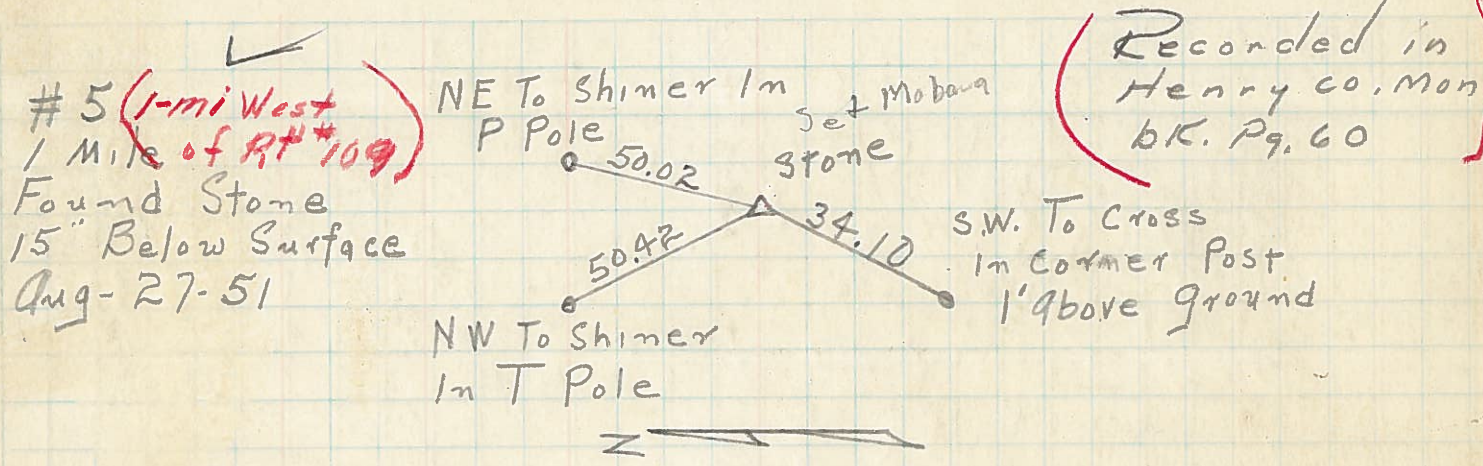 # 5 (1-mi West
of Rt# 109)
1 Mile
Found Stone
15" Below Surface
Aug-27-51
NE To Shiner In
P Pole
50.02
Set
Stone
50.42
34.10
NW To Shiner
In T Pole
S.W. To Cross
In Corner Post
1' above Ground
(Recorded in
Henry Co. Mon
bk. Pg. 60
N